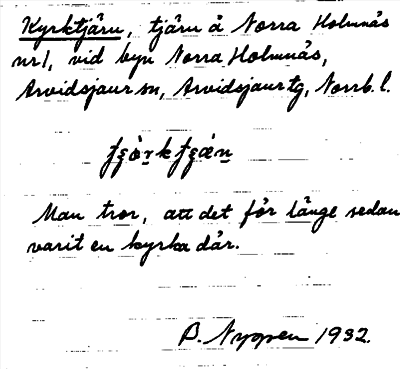 Kyrktjärn, tjärn å Norra Holmnäs
nr 1, vid byn Norra Holmnäs,
Arvidsjaur sn, Arvidsjaur tg, Norrb. l.
Man tror, att det för länge sedan
varit en kyrka där.
B. Nyppen 1932.